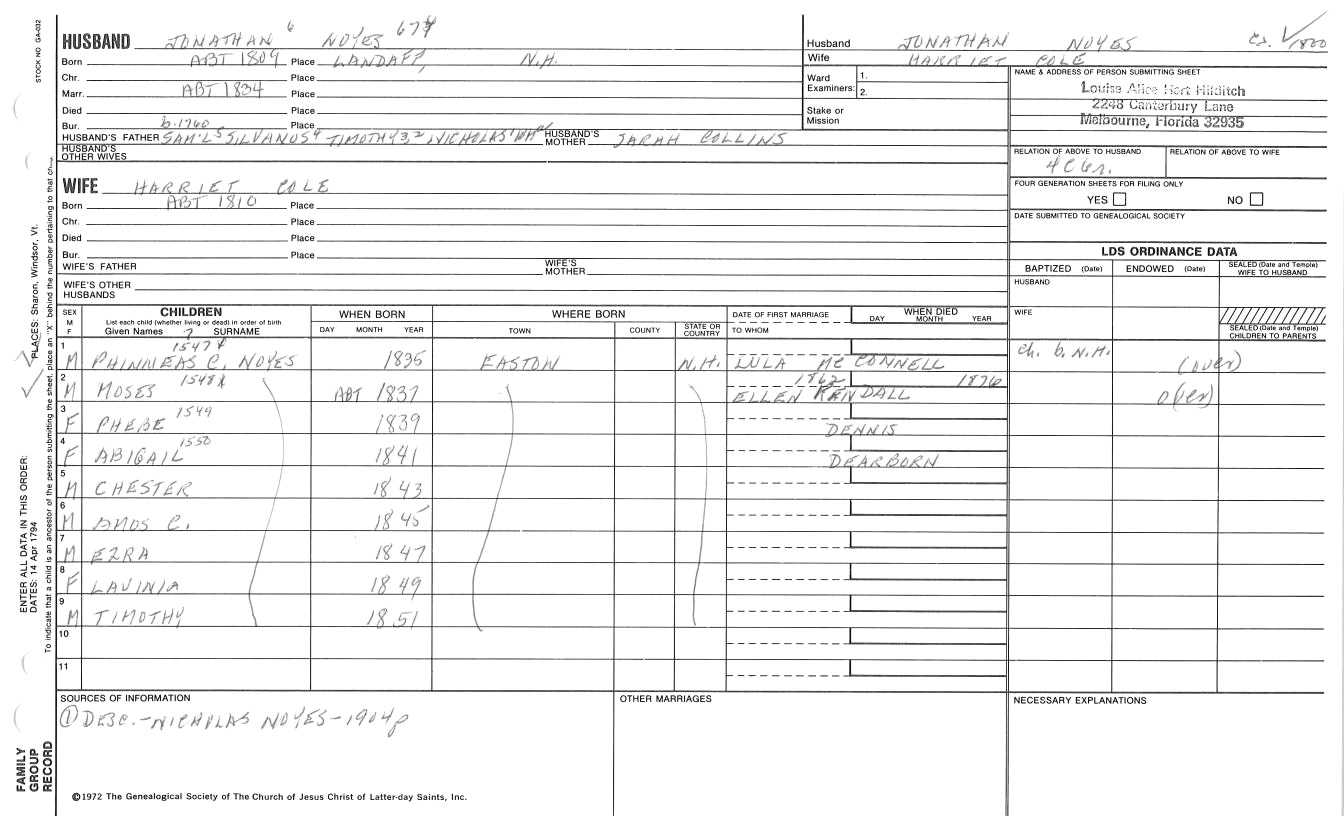 HUSBAND JONATHAN 6 NOYES 674
Born ABT 1809 Place LANDAFF, N.H.
Chr. Place
Marr. ABT 1834 Place
Died Place
Bur. b. 1760 Place
HUSBAND'S FATHER SAM'L 5 SILVANUS 4 TIMOTHY 3 2 NICHOLAS 1 HUSBAND'S MOTHER SARAH COLLINS
HUSBAND'S OTHER WIVES
WIFE HARRIET COLE
Born ABT 1810 Place
Chr. Place
Died Place
Bur. Place
WIFE'S FATHER WIFE'S MOTHER
WIFE'S OTHER HUSBANDS
Husband JONATHAN NOYES
Wife HARRIET COLE
Cs. 1800
Ward Examiners: 1.
2.
Stake or Mission
NAME & ADDRESS OF PERSON SUBMITTING SHEET
Louise Alice Hert Hilditch
2248 Canterbury Lane
Melbourne, Florida 32935
RELATION OF ABOVE TO HUSBAND RELATION OF ABOVE TO WIFE
4C6r.
FOUR GENERATION SHEETS FOR FILING ONLY
YES NO
DATE SUBMITTED TO GENEALOGICAL SOCIETY
LDS ORDINANCE DATA
BAPTIZED (Date) ENDOWED (Date) SEALED (Date and Temple) WIFE TO HUSBAND
HUSBAND
WIFE
SEALED (Date and Temple) CHILDREN TO PARENTS
SEX M F CHILDREN WHEN BORN WHERE BORN DATE OF FIRST MARRIAGE WHEN DIED
List each child (whether living or dead) in order of birth
Given Names ? SURNAME DAY MONTH YEAR TOWN COUNTY STATE OR COUNTRY TO WHOM DAY MONTH YEAR
1 M PHINNEAS C. NOYES 1547 X 1835 EASTON N.H. LULA McCONNELL ch. b. N.H. (over)
2 M MOSES 1548 X ABT 1837 1862 1876 ELLEN KENDALL (over)
3 F PHEBE 1549 1839 DENNIS
4 F ABIGAIL 1550 1841 DEARBORN
5 M CHESTER 1843
6 M AMOS C. 1845
7 M EZRA 1847
8 F LAVINIA 1849
9 M TIMOTHY 1851
10
11
SOURCES OF INFORMATION OTHER MARRIAGES NECESSARY EXPLANATIONS
① DESC.-NICHOLAS NOYES-1904p
©1972 The Genealogical Society of The Church of Jesus Christ of Latter-day Saints, Inc.
STOCK NO GA-032
PLACES: Sharon, Windsor, Vt.
To indicate that a child is an ancestor of the person submitting the sheet, place an "X" behind the number pertaining to that ch
ENTER ALL DATA IN THIS ORDER:
DATES: 14 Apr 1794
FAMILY GROUP RECORD